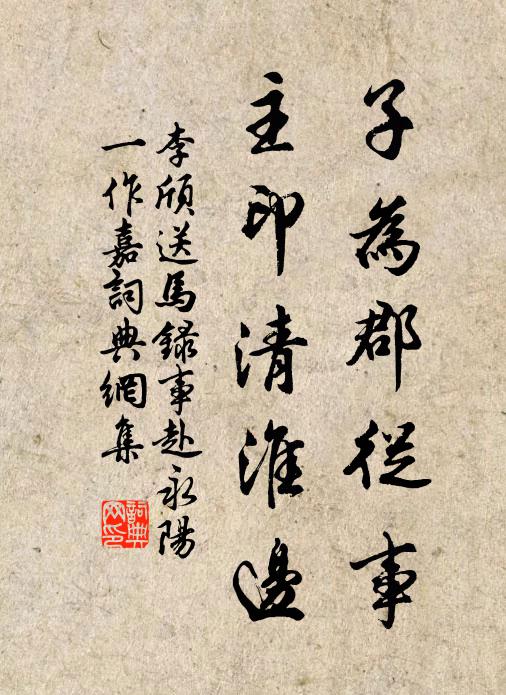 子為郡從事
主印清淮邊
李頎送馬錄事赴永陽
一作嘉詞典網集
詞典
网印